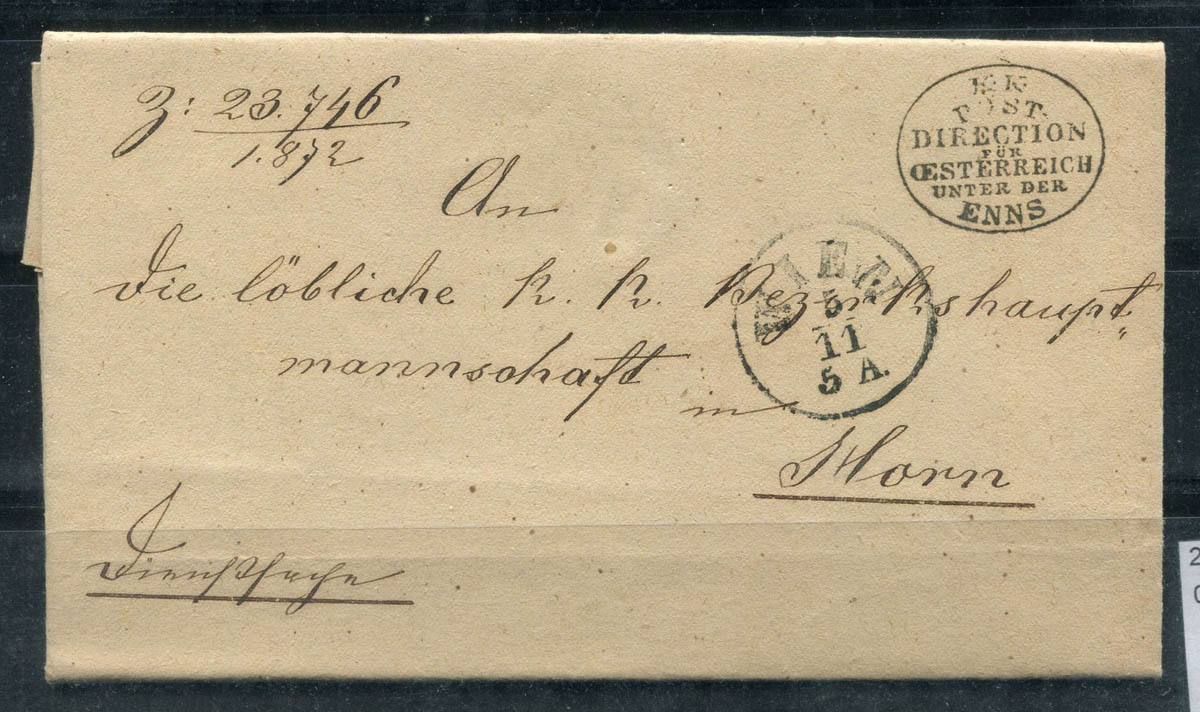 Z: 23.746
1.872
K K
POST.
DIRECTION
FÜR
ŒSTERREICH
UNTER DER
ENNS
An
die löbliche k. k. Bezirkshaupt„
mannschaft
in
Horn
WIEN
5
11
5 A.
Dienstsache
2